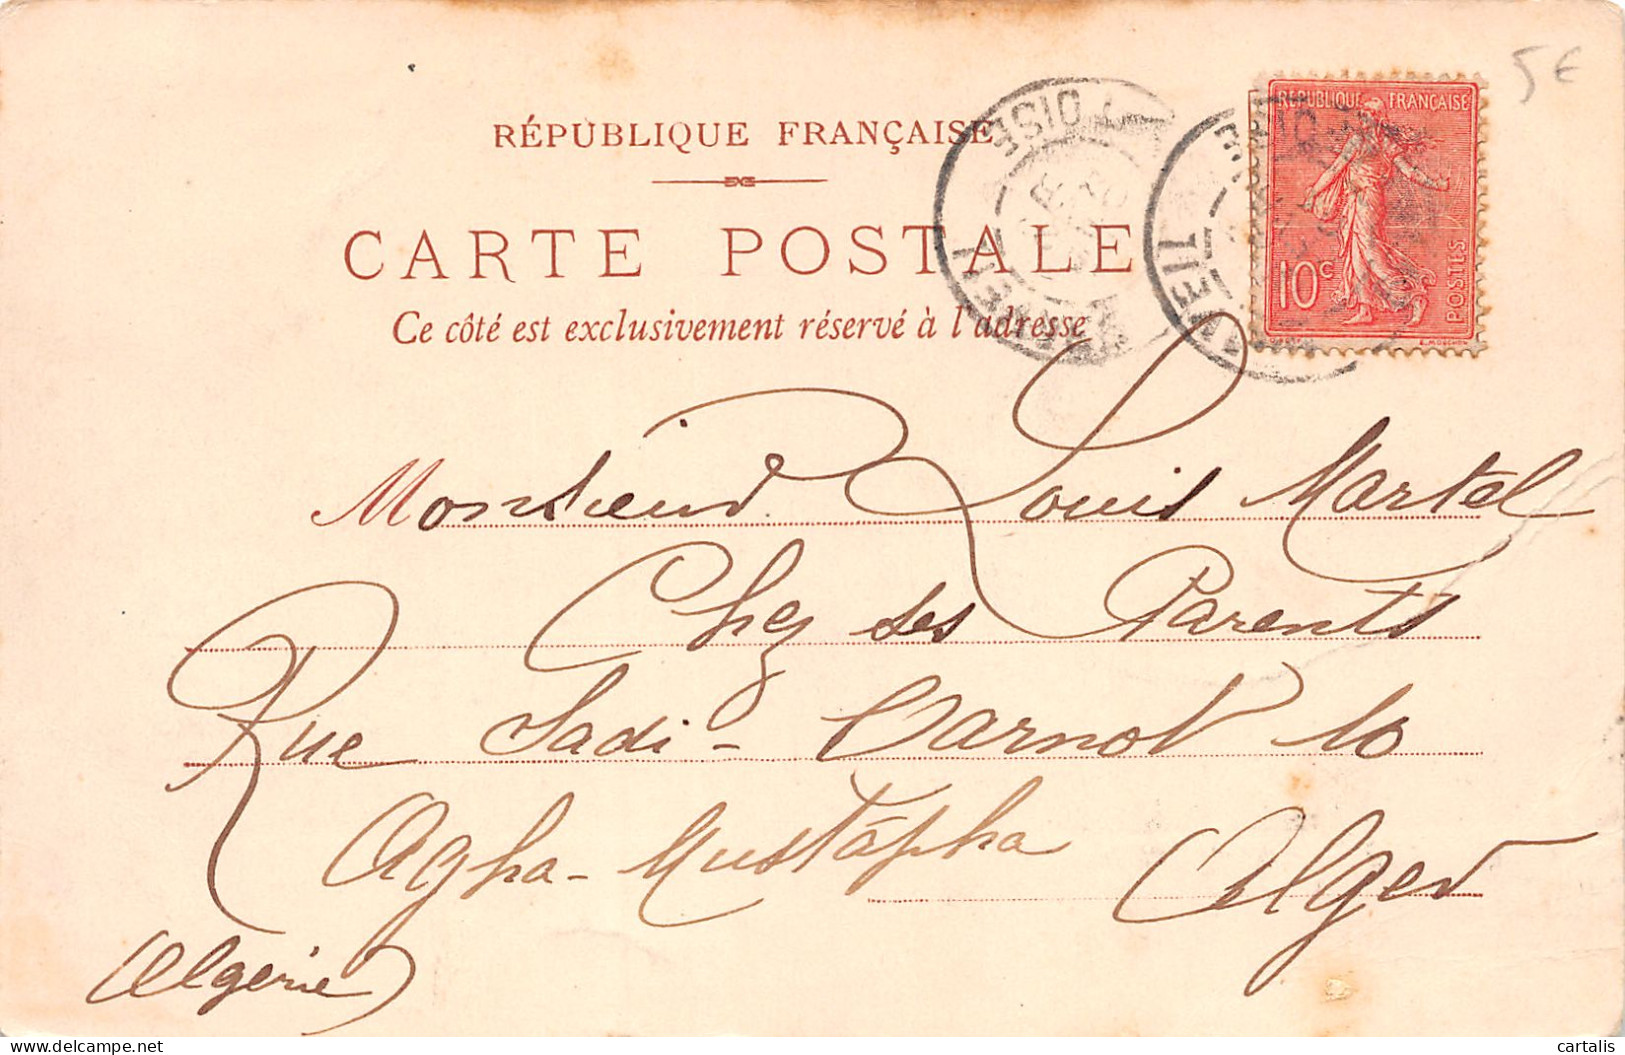 5 €
RÉPUBLIQUE FRANÇAISE
CARTE POSTALE
Ce côté est exclusivement réservé à l'adresse
REPUBLIQUE FRANÇAISE
10c
POSTES
Monsieur Louis Martel
Chez ses Parents
Rue Sadi-Carnot 10
Agha-Mustapha Alger
Algérie
cartalis